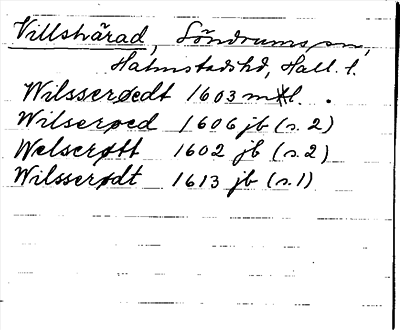 Villshärad, Söndrums sn,
Halmstads hd, Hall. l.
Wilsserøedt 1603 mtl.
Wilserøed 1606 jb (s. 2)
Welserøtt 1602 jb (s. 2)
Wilsserødt 1613 jb (s. 1)